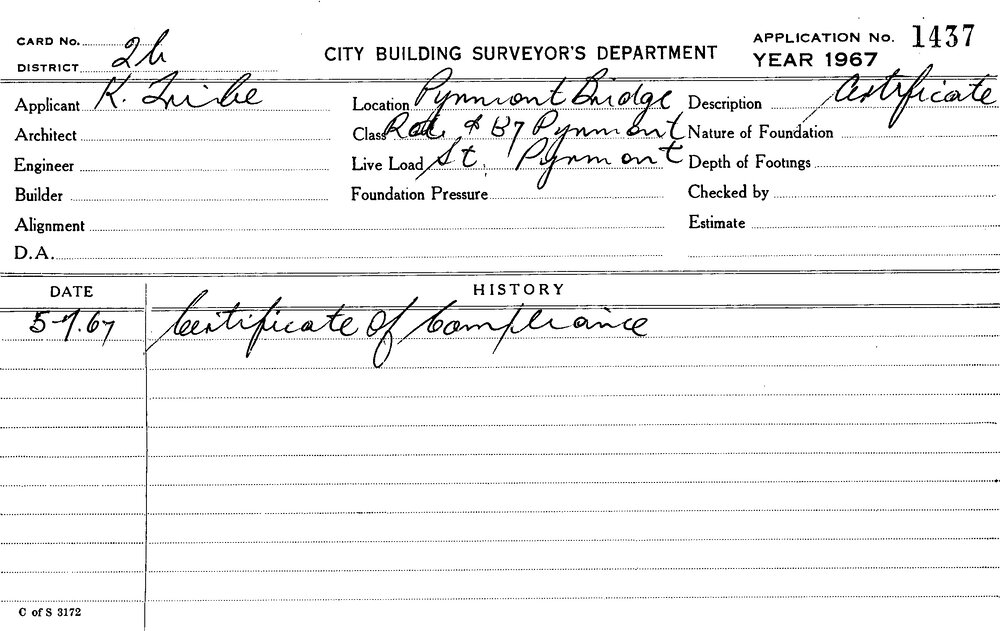 CARD No. 2b
DISTRICT
CITY BUILDING SURVEYOR'S DEPARTMENT
APPLICATION No. 1437
YEAR 1967
Applicant K. Tribe
Location Pyrmont Bridge
Description Certificate
Architect
Class Rd. & 87 Pyrmont
Nature of Foundation
Engineer
Live Load St. Pyrmont
Depth of Footings
Builder
Foundation Pressure
Checked by
Alignment
Estimate
D.A.
DATE HISTORY
5-7.67 Certificate of Compliance
C of S 3172